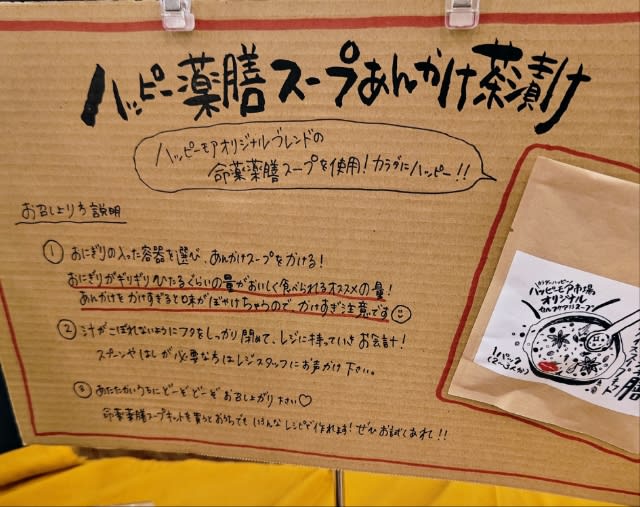 ハッピー薬膳スープあんかけ茶漬け
ハッピーモアオリジナルブレンドの
命薬薬膳スープを使用！カラダにハッピー！！
お召しより方説明
① おにぎりの入った容器を選び、あんかけスープをかける！
おにぎりがギリギリひたるぐらいの量がおいしく食べられるオススメの量！
あんかけをかけすぎると味がぼやけちゃうので、かけすぎ注意です
② 汁がこぼれないようにフタをしっかり閉めて、レジに持っていきお会計！
スプーンやはしが必要な方はレジスタッフにお声がけ下さい。
③ あたたかいうちにどーぞどーぞお召し上がり下さい♡
命薬薬膳スープキットを買うとおうちでもいろんなレシピで作れます！ぜひお試しあれ！！
ハッピーモア市場
オリジナル
1パック
(2〜3人分)
膳